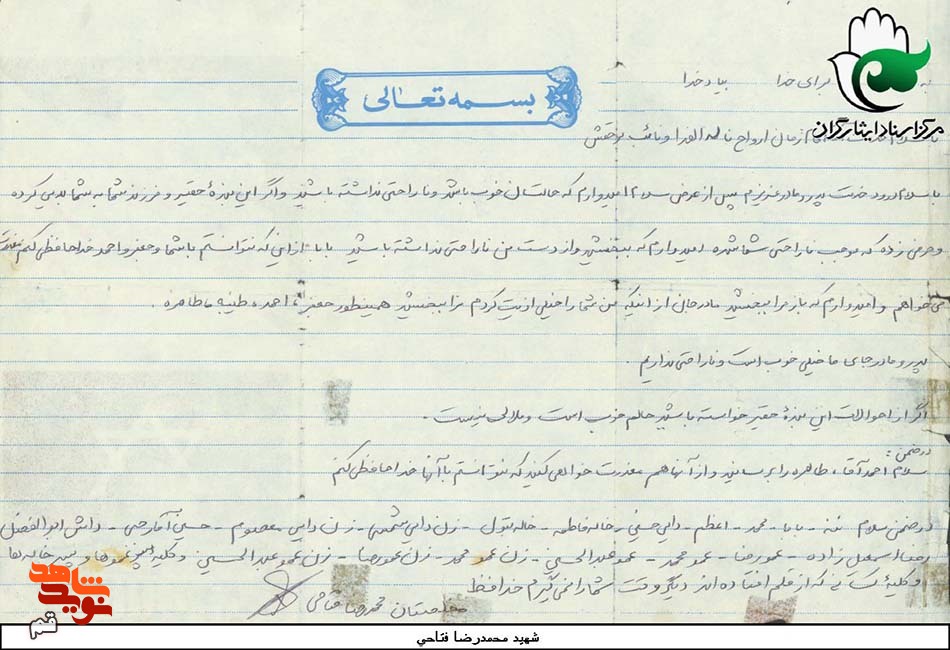 بسمه تعالی
برای خدا بیاد خدا
مرکز اسناد ایثارگران
امام زمان ارواح فاله الفدا و نائب برحقش
با سلام و درود خدمت پدر و مادر عزیزم پس از عرض سلام امیدوارم که حالتان خوب باشد و ناراحتی نداشته باشید و اگر این بندهٔ حقیر و فرزند شما به شما بدی کرده
و حرفی زده که موجب ناراحتی شما شده امیدوارم که ببخشید و از دست من ناراحتی نداشته باشید بابا از این که نتوانستم با شما و جعفر و احمد خداحافظی کنم معذرت
می خواهم و امیدوارم که باز مرا ببخشید مادر جان از اینکه من شما را خیلی اذیت کردم مرا ببخشید همینطور جعفر، احمد، طیبه با طاهره.
پدر و مادر جای ما خیلی خوب است و ناراحتی نداریم.
اگر از احوالات این بندهٔ حقیر خواسته باشید حالم خوب است و ملالی نیست.
در ضمن:
سلام احمد آقا، طاهره را برسانید و از آنها هم معذرت خواهی کنید که نتوانستم با آنها خداحافظی کنم
در ضمن سلام ننه - بابا - محمد - اعظم - دایی حسن - خاله فاطمه - خاله بتول - زن دایی شمسی - زن دایی معصوم - حسین آقا رجبی - دانش ابوالفضل
رضا اسمعیل زاده - عمو رضا - عمو محمد - عمو عبدالحسین - زن عمو محمد - زن عمو رضا - زن عمو عبدالحسین و کلیه پسر عموها و پسر خاله ها
و کلیهٔ کسانی که از قلم افتاده اند دیگر وقت شما را نمی گیرم خداحافظ
محمدرضا فتاحی
نوید شاهد
قم
شهید محمدرضا فتاحي